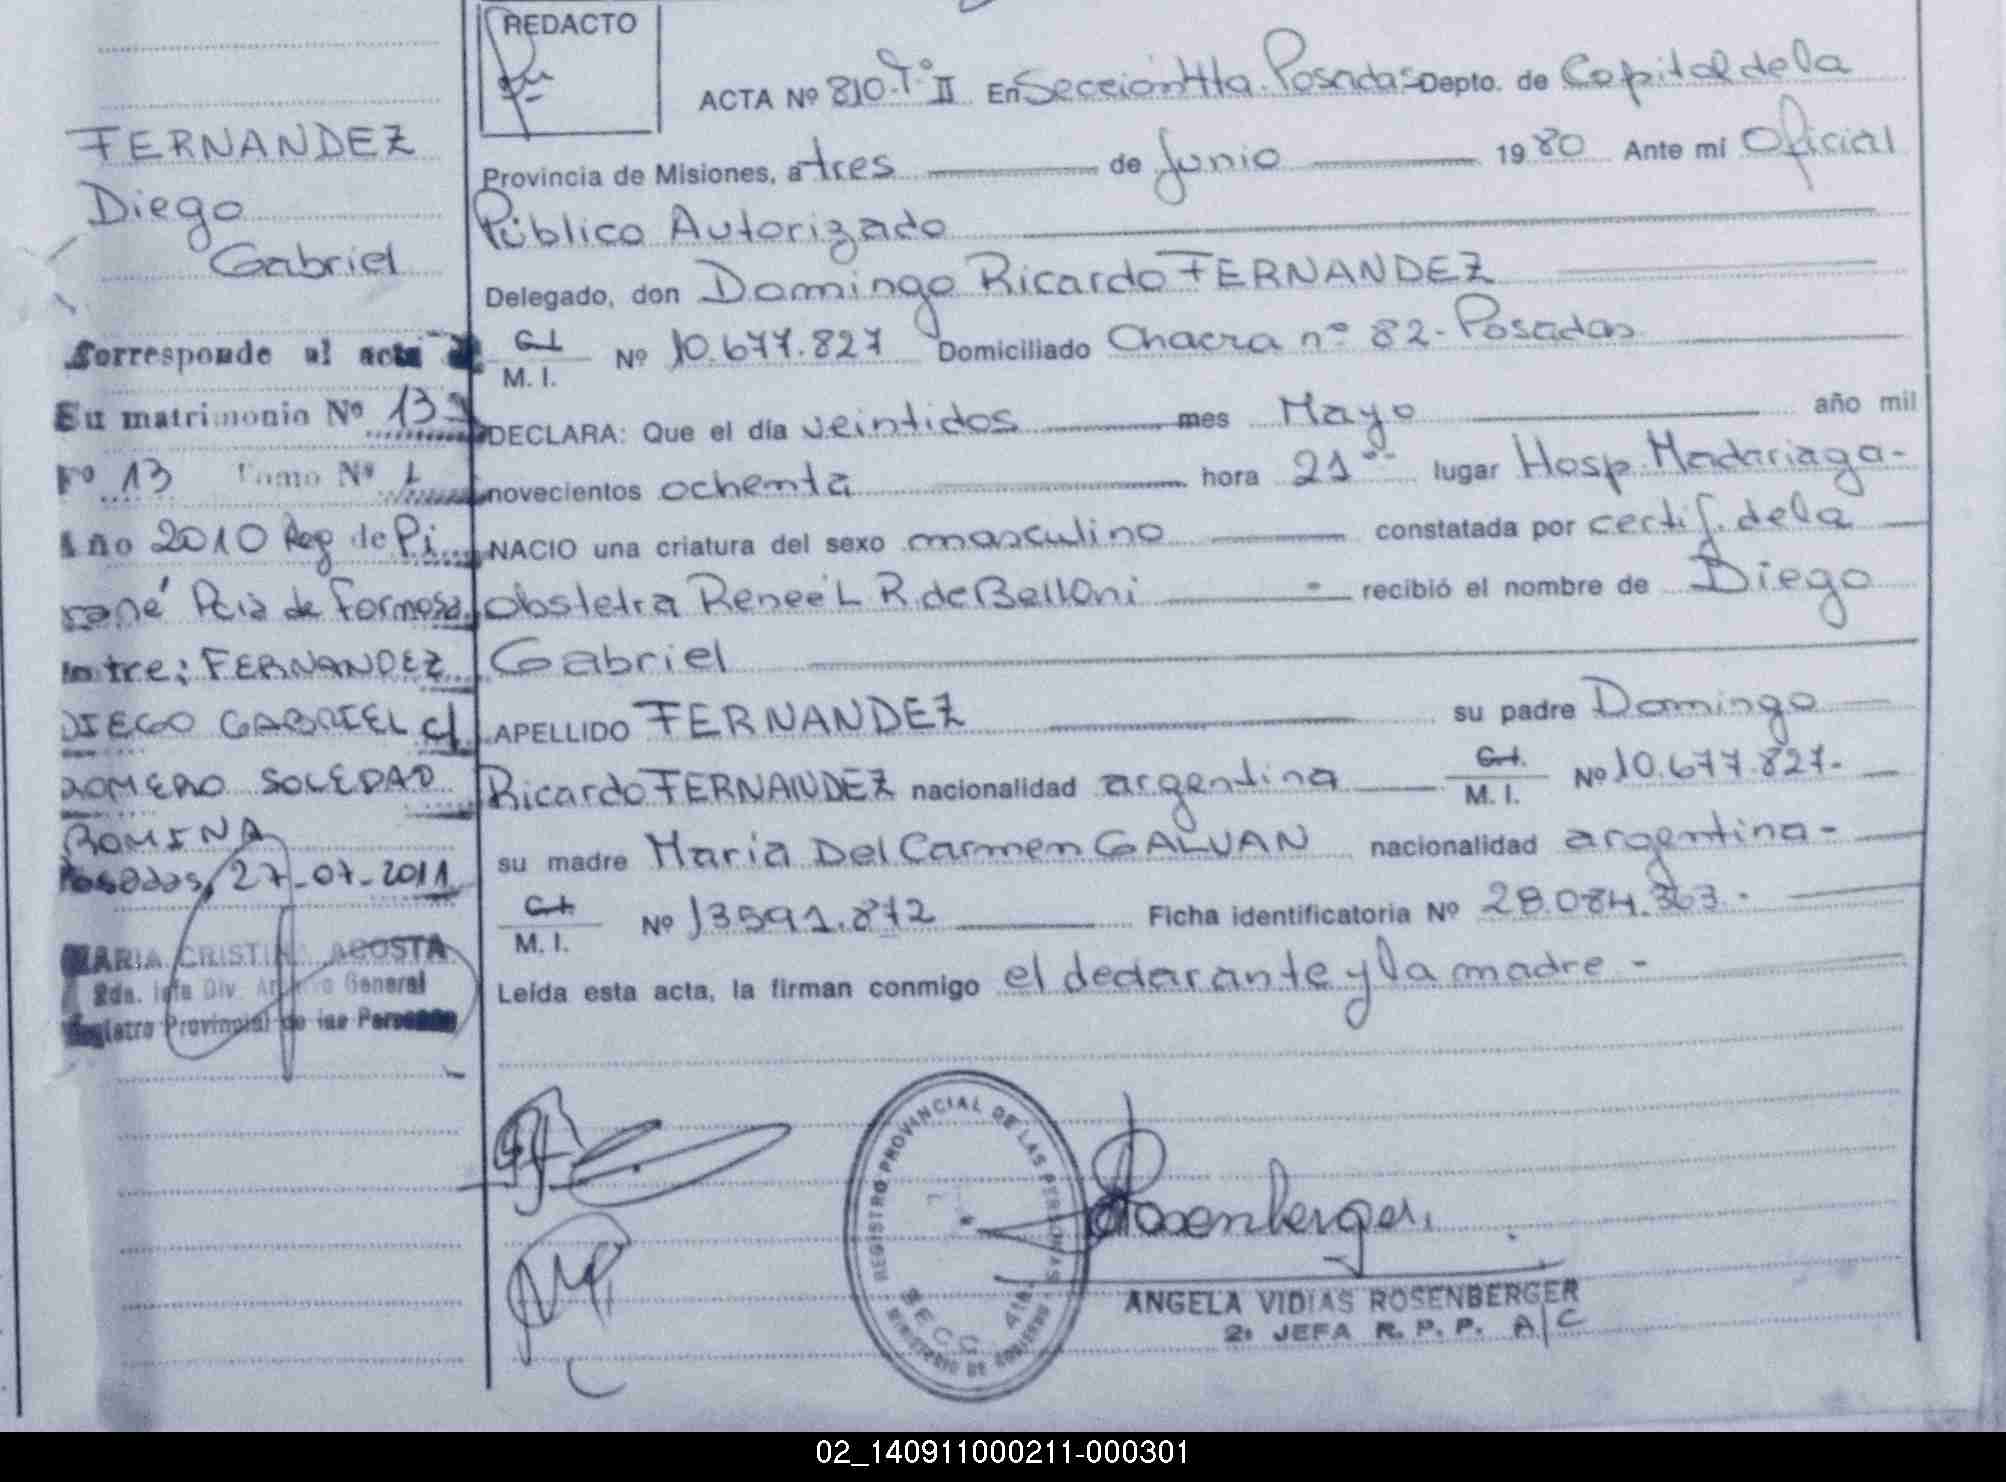 REDACTO
ACTA Nº 810 Tº II En Sección 4ta. Posadas Depto. de Capital de la
Provincia de Misiones, a tres de Junio 1980 Ante mí Oficial
Público Autorizado
Delegado, don Domingo Ricardo FERNANDEZ
C.I.
M. I. Nº 10.677.827 Domiciliado Chacra nº 82- Posadas
DECLARA: Que el día veintidos mes Mayo año mil
novecientos ochenta hora 21 lugar Hosp. Madariaga-
NACIO una criatura del sexo masculino constatada por certif. de la
obstetra Reneé L R. de Belloni - recibió el nombre de Diego
Gabriel
APELLIDO FERNANDEZ su padre Domingo
Ricardo FERNANDEZ nacionalidad argentina C.I.
M. I. Nº 10.677.827-
su madre Maria Del Carmen GALVAN nacionalidad argentina-
C.I.
M. I. Nº 13591.872 Ficha identificatoria Nº 28.084.363-
Leída esta acta, la firman conmigo el declarante y la madre -
FERNANDEZ
Diego
Gabriel
Corresponde al acta
Eu matrimonio Nº 13
Fº 13 Tomo Nº 1
Año 2010 Reg de Pi
rané Pcia de Formosa
entre: FERNANDEZ
DIEGO GABRIEL c/
ROMERO SOLEDAD
ROMINA
Posadas, 27-07-2011
MARIA CRISTINA ACOSTA
2da. Jefa Div. Archivo General
Registro Provincial de las Personas
REGISTRO PROVINCIAL DE LAS PERSONAS
SECC. 4ta.
MINISTERIO DE GOBIERNO
Rosenberger
ANGELA VIDIAS ROSENBERGER
2ª JEFA R. P. P. A/C
02_140911000211-000301